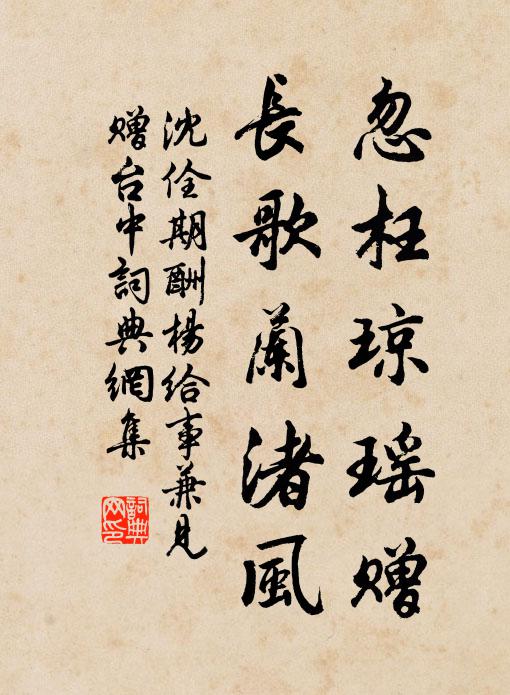 忽枉琼瑶赠
長歌蘭渚風
沈佺期酬楊给事兼見
赠台中詞典網集
詞典网印